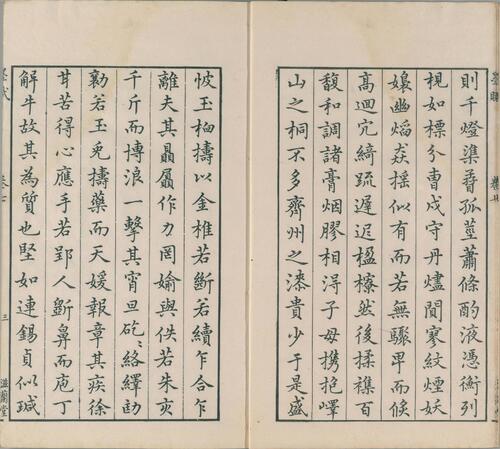 則千燈孤莖蕭條酌液憑衡列
梘如標分曹戍守丹爐間寥紋煙妖
嬝幽熖焱搖似有而若無驟畢而候
高迴宂綺疏遲遲櫺然後揉襍百
馥和調諸膏烟膠相淂子毋携抱嶧
山之桐不多齊州之漆貴少于是盛
玉擣以金椎若斷若續乍合乍
離夫其贔屭作力罔媮與佚若朱亥
千斤而博浪一擊其宵旦矻〻絡繹劻
勷若玉兎擣藥而天媛報章其疾徐
甘苦得心應手若郢人斲鼻而庖丁
解牛故其為質也堅如連錫貞似瑊
卷七
三
滋蘭堂